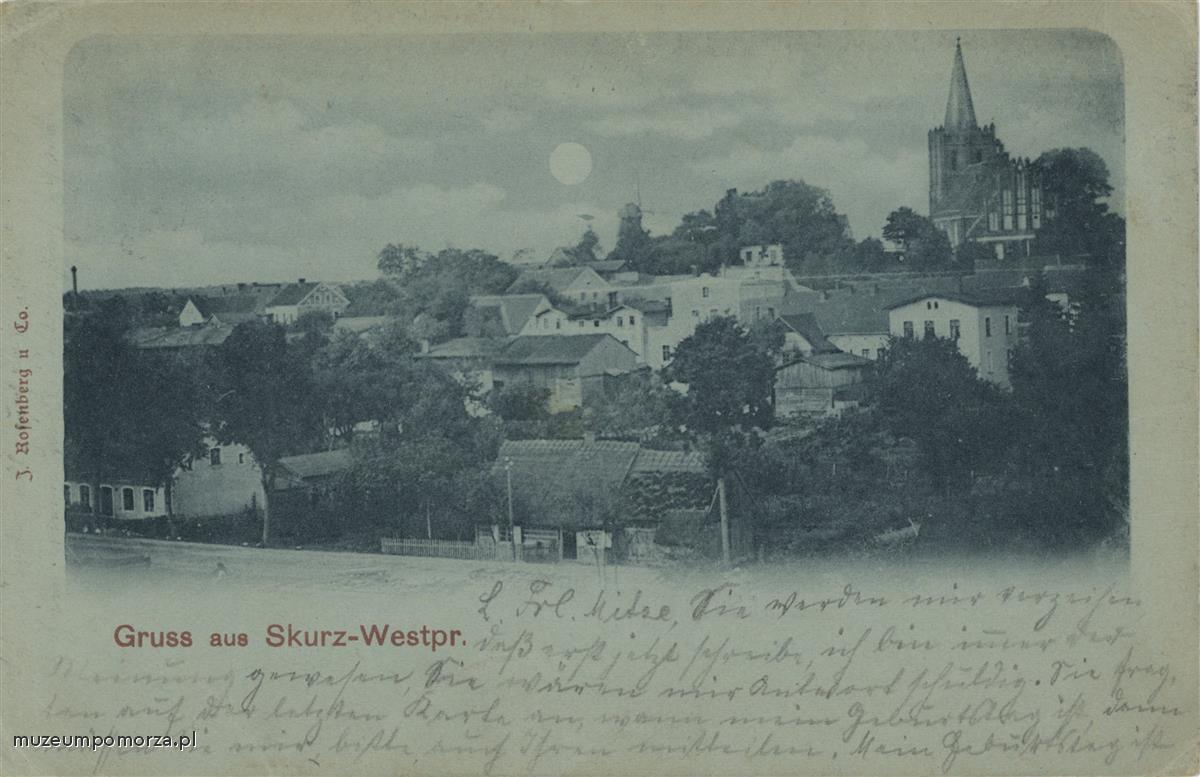 J. Rosenberg u Co.
Gruss aus Skurz-Westpr.
L. Frl. Mitze, Sie werden mir verzeihen
daß erst jetzt schreibe, ich bin immer der
Meinung gewesen, Sie wären mir Antwort schuldig. Sie frag,
ten auf der letzten Karte an, wann mein Geburtstag ist, dann
mir bitte auch Ihren mitteilen. Mein Geburtstag ist
muzeumpomorza.pl